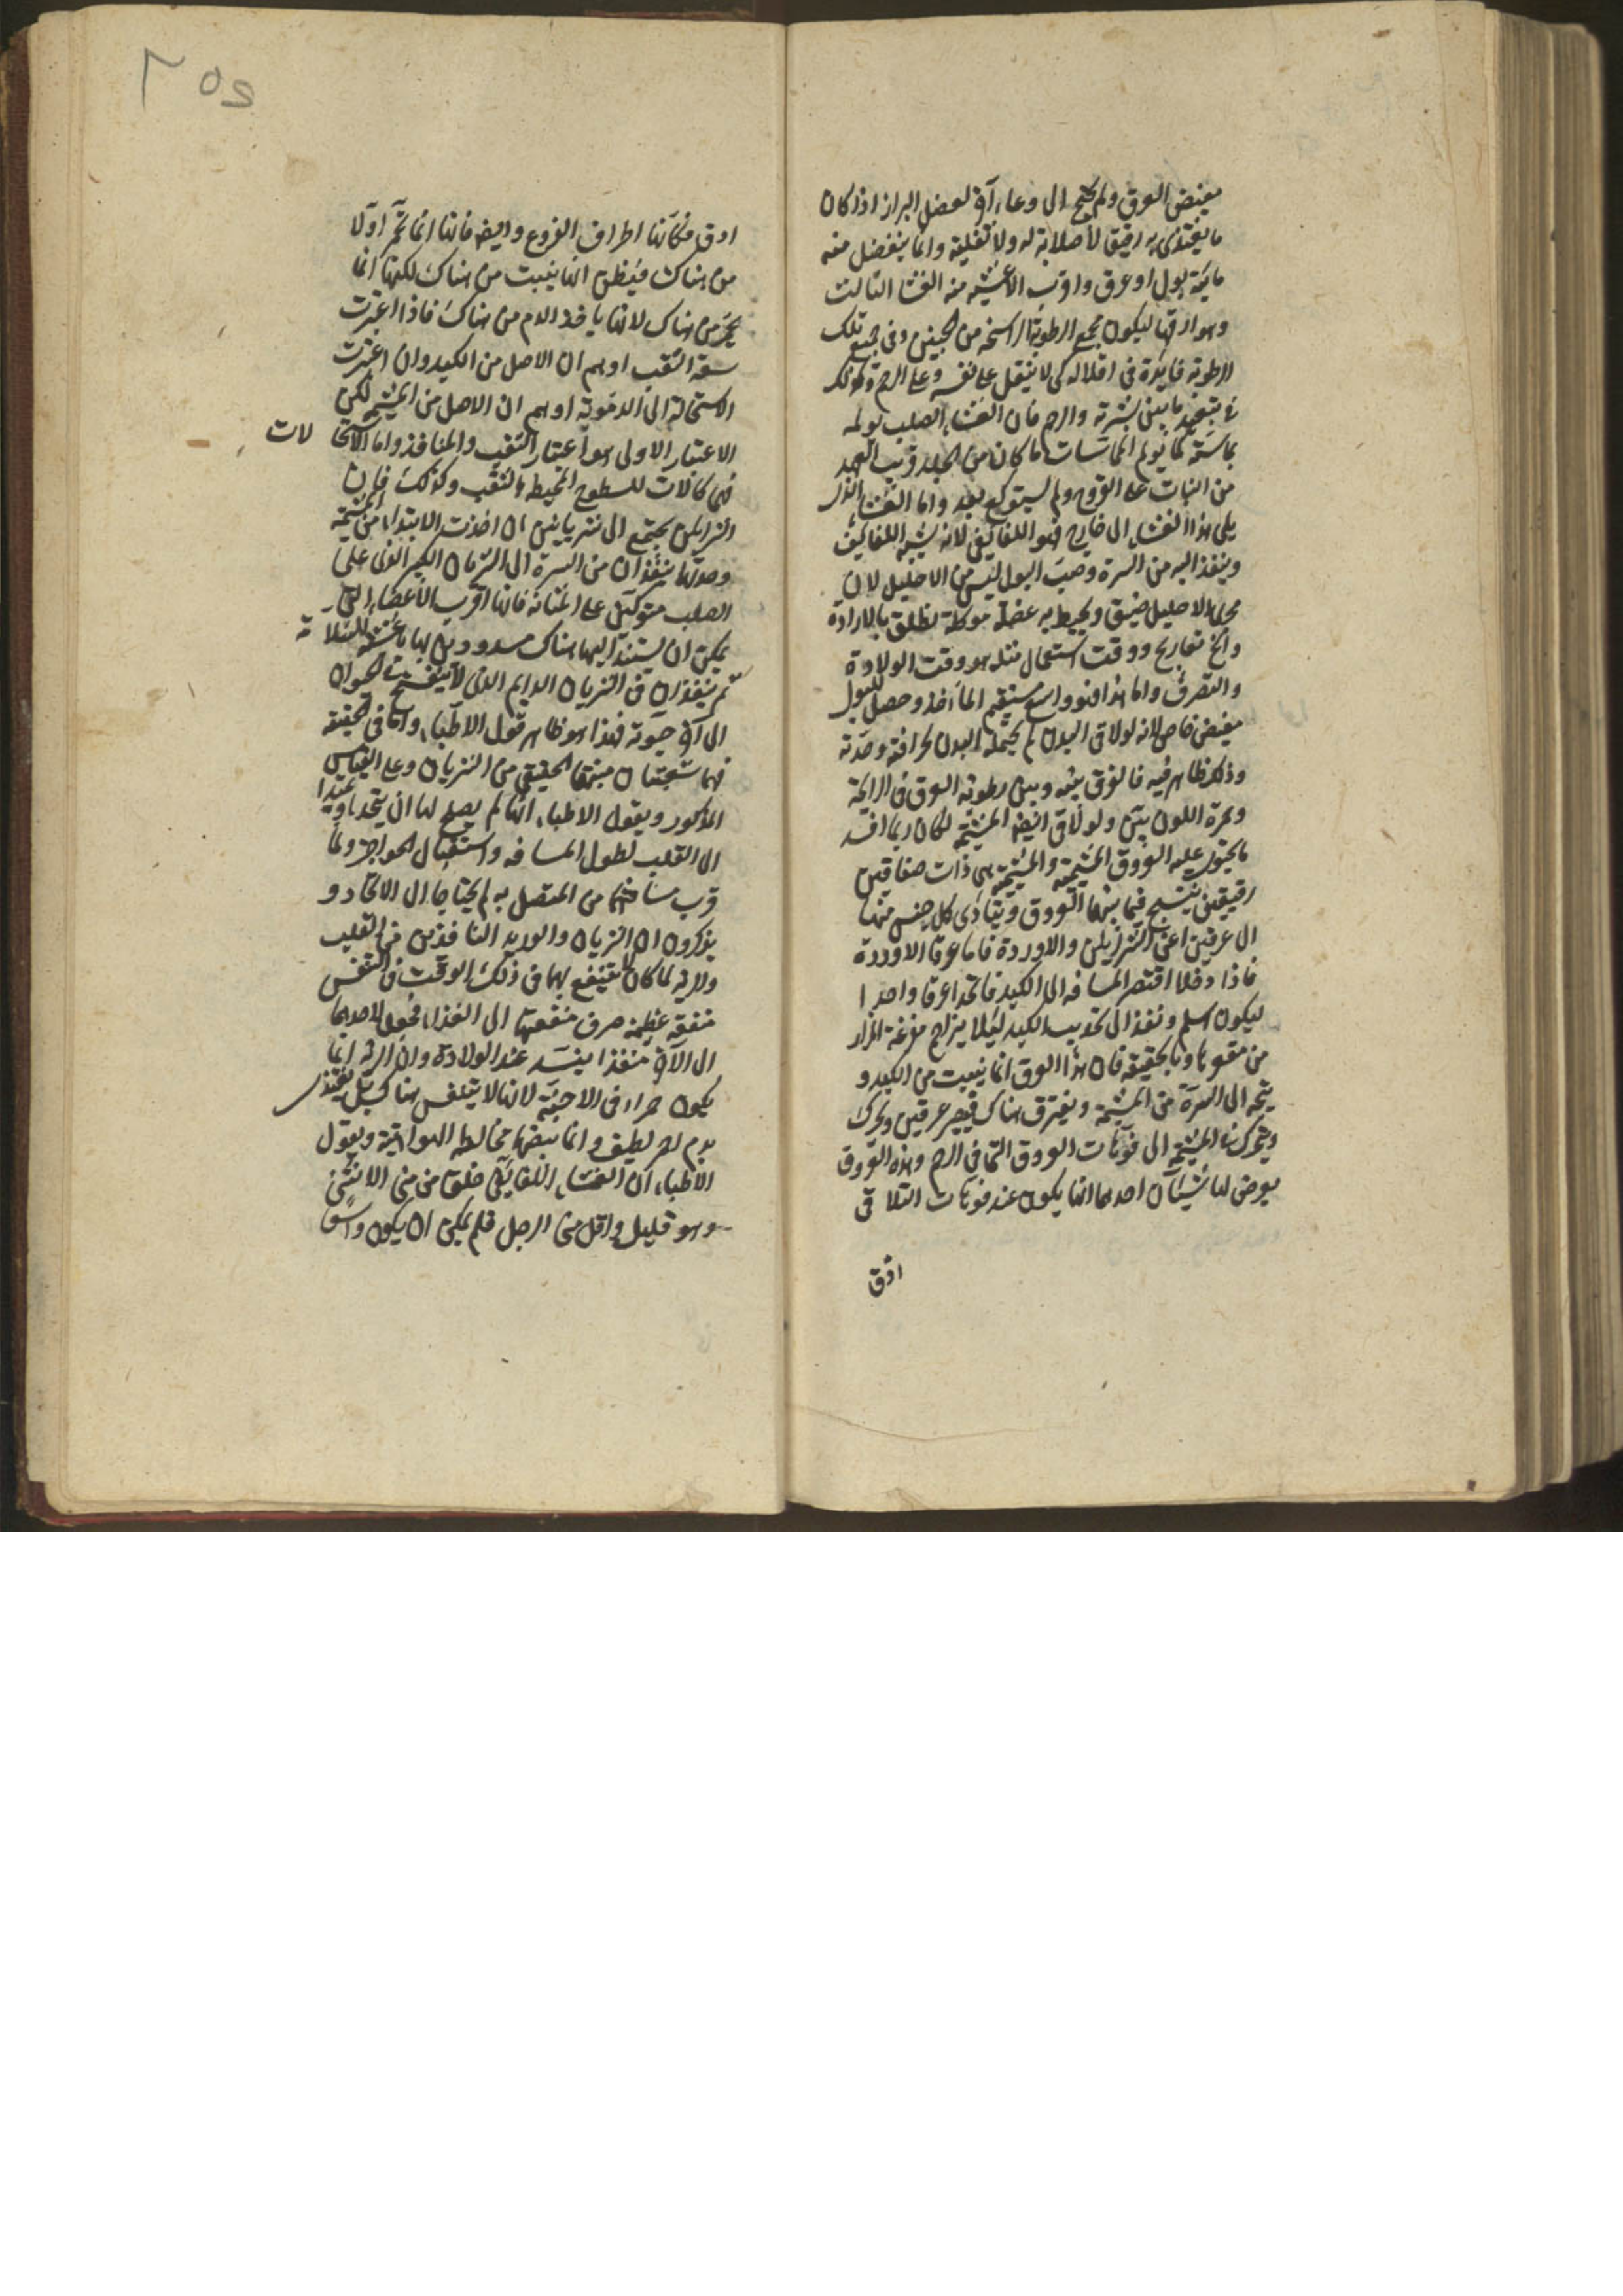 مغيض العرق ولم يحتج الى وعاء آخر لفضل البراز اذا كان
ما يغتذى به رقيق لا صلابة له ولا ثفل فيه وانما ينفصل منه
مائية بول او عرق واقرب الاغشيه منه الغشا الثالث
وهو ارقها ليكون مجمع الرطوبة الراسخه من الجنين وفى جمع تلك
الرطوبة فايدة فى اقلاله كى لا يثقل على نفسه وعلى الرحم وكذلك
فى تبعيد ما بين بشرته والرحم فان الغشاء الصلب يولمه
بماسته كما يولم المماسات ما كان من الجلد قريب العهد
من النبات على القروح ولم يستوكع بعد واما الغشاء الذى
يلى هذا الغشاء الى خارج فهو اللفائفى لانه يشبه اللفائف
وينفذ اليه من السرة ومصب البول ليس من الاحليل لان
مجرى الاحليل ضيق ويحيط به عضلة موكلة تطلق بالارادة
وآخره تعاريج ووقت استعمال مثله هو وقت الولادة
والتصرف واما هذا فهو واسع مستقيم المأخذ وحصل للبول
مغيض خاص لانه لو لاقى البدن لم يحتمله البدن لحرافته وحدته
وذلك ظاهر فيه فالفرق بينه وبين رطوبة العرق فى الرايحة
وحمرة اللون بين ولو لاقى ايضا المشيمة لكان ربما افسد
ما يحتوى عليه العروق المشيمية والمشيمة هى ذات صفاقين
رقيقين ينتسج فيما بينهما العروق ويتأدى كل جنس منها
الى عرقين اعنى الشرايين والاوردة فاما عرقا الاوردة
فاذا دخلا اقتصر المسافه الى الكبد فاتحدا عرقا واحدا
ليكون اسلم ونفذ الى تحديب الكبد ليلا يزاحم مفرغة المرار
من مقعرها وبالحقيقه فان هذا العرق انما ينبت من الكبد و
يتجه الى السرة من المشيمة ويفترق هناك فيصير عرقين ويخرج
ويتحرك فى المشيمة الى فوهات العروق التى فى الرحم وهذه العروق
يعرض لها شيئان احدهما انها يكون عند فوهات التلاقى
ادق
ادق فكانها اطراف الفروع وايضا فانها انما تحمر اولا
من هناك فيظن انها ينبت من هناك لكنها انما
يحمر من هناك لانها ياخذ الدم من هناك فاذا اعتبرت
سعة الثقب اوهم ان الاصل من الكبد وان اعتبرت
الاستحالة الى الدموية اوهم ان الاصل من المشيمة لكن
الاعتبار الاولى هو اعتبار الثقب والمنافذ واما الاستحالات
فهى كمالات للسطوح المحيطه بالثقب وكذلك فان
الشرايين يجتمع الى شريانين ان اخذت الابتداء من المشيمة
وجدتها ينفذان من السرة الى الشريان الكبير الذى على
الصلب متوكئين على المثانة فانها اقرب الاعضاء التى
يمكن ان يستند اليها هناك مسدودين بها باغشية للسلامة
ثم ينفذان فى الشريان الدايم الذى لا ينفسخ فى الحيوان
الى آخر حيوته فهذا هو ظاهر قول الاطباء واما فى الحقيقه
فهما شعبتان منبتهما الحقيقى من الشريان وعلى القياس
المذكور ويقول الاطباء انها لم يصلح لها ان يتحدا ويمتدا
الى القلب لطول المسافه واستقبال الحواجز ولما
قرب مسافتهما من المتصل به لم يحتاجا الى الاتحاد و
يذكرون ان الشريان والوريد النافذين من القلب
والرية لما كان لا ينتفع بهما فى ذلك الوقت فى التنفس
منفعة عظيمة صرف منفعتهما الى الغذاء فجعل لاحدهما
الى الآخر منفذا ينسد عند الولادة وان الرية انما
يكون حمراء فى الاجنة لانها لا يتنفس هناك بل تغتذى
بدم احمر لطيف وانما يبيضها مخالطة الهوائية ويقول
الاطباء ان الغشاء اللفائفى خلق من منى الانثى
وهو قليل واقل من منى الرجل فلم يمكن ان يكون واسعا